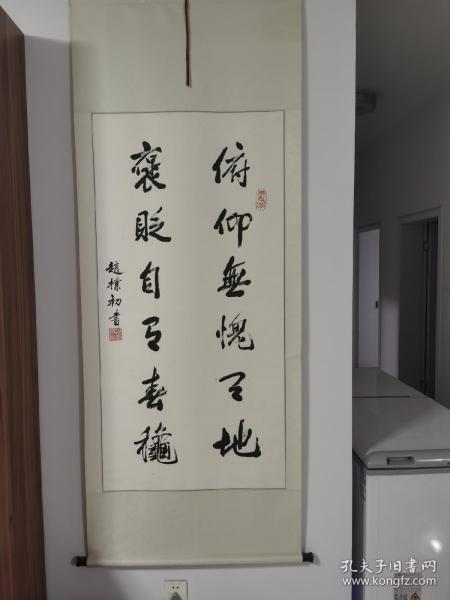 俯仰無愧天地
褒貶自有春穐
趙樸初書
孔夫子旧书网
www.kongfz.com